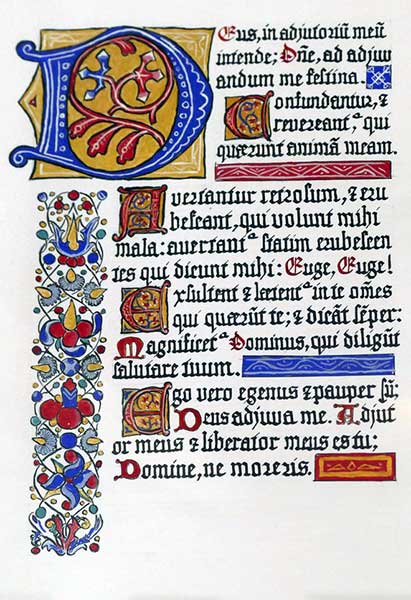 DEus, in adjutoriũ meũ
intende; Dñe, ad adjuv
andum me festina.
Confundantur, &
revereantᵃ, qui
quærunt animã meam.
Avertantur retrosum, & eru
bescant, qui volunt mihi
mala: avertantᵃ statim erubescen
tes qui dicunt mihi: Euge, Euge!
Exsultent & lætentᵃ in te om̃es
qui quærũt te; & dicãt sẽper:
Magnificetᵃ Dominus, qui diligũt
salutare tuum.
Ego vero egenus & pauper sũ;
Deus adjuva me. Adjut
or meus & liberator meus es tu;
Domine, ne moreris.